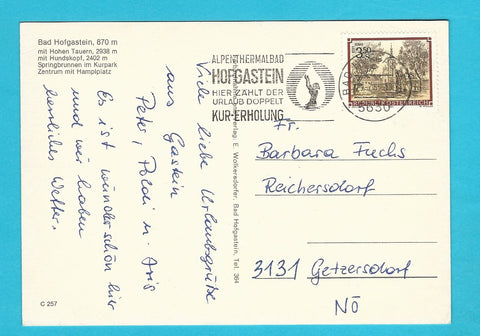 Bad Hofgastein, 870 m
mit Hohen Tauern, 2938 m
mit Hundskopf, 2402 m
Springbrunnen im Kurpark
Zentrum mit Hamplplatz
Viele liebe Urlaubsgrüße
aus Gastein
Peter, Poldi u. Iris
Es ist wunderschön hier
und wir haben
herrliches Wetter.
C 257
Verlag: E. Wolkersdorfer, Bad Hofgastein, Tel. 364
ALPENTHERMALBAD
HOFGASTEIN
HIER ZÄHLT DER
URLAUB DOPPELT
KUR-ERHOLUNG
BAD
5630
S 3.50
REPUBLIK ÖSTERREICH
Fr.
Barbara Fuchs
Reichersdorf
3131 Getzersdorf
NÖ